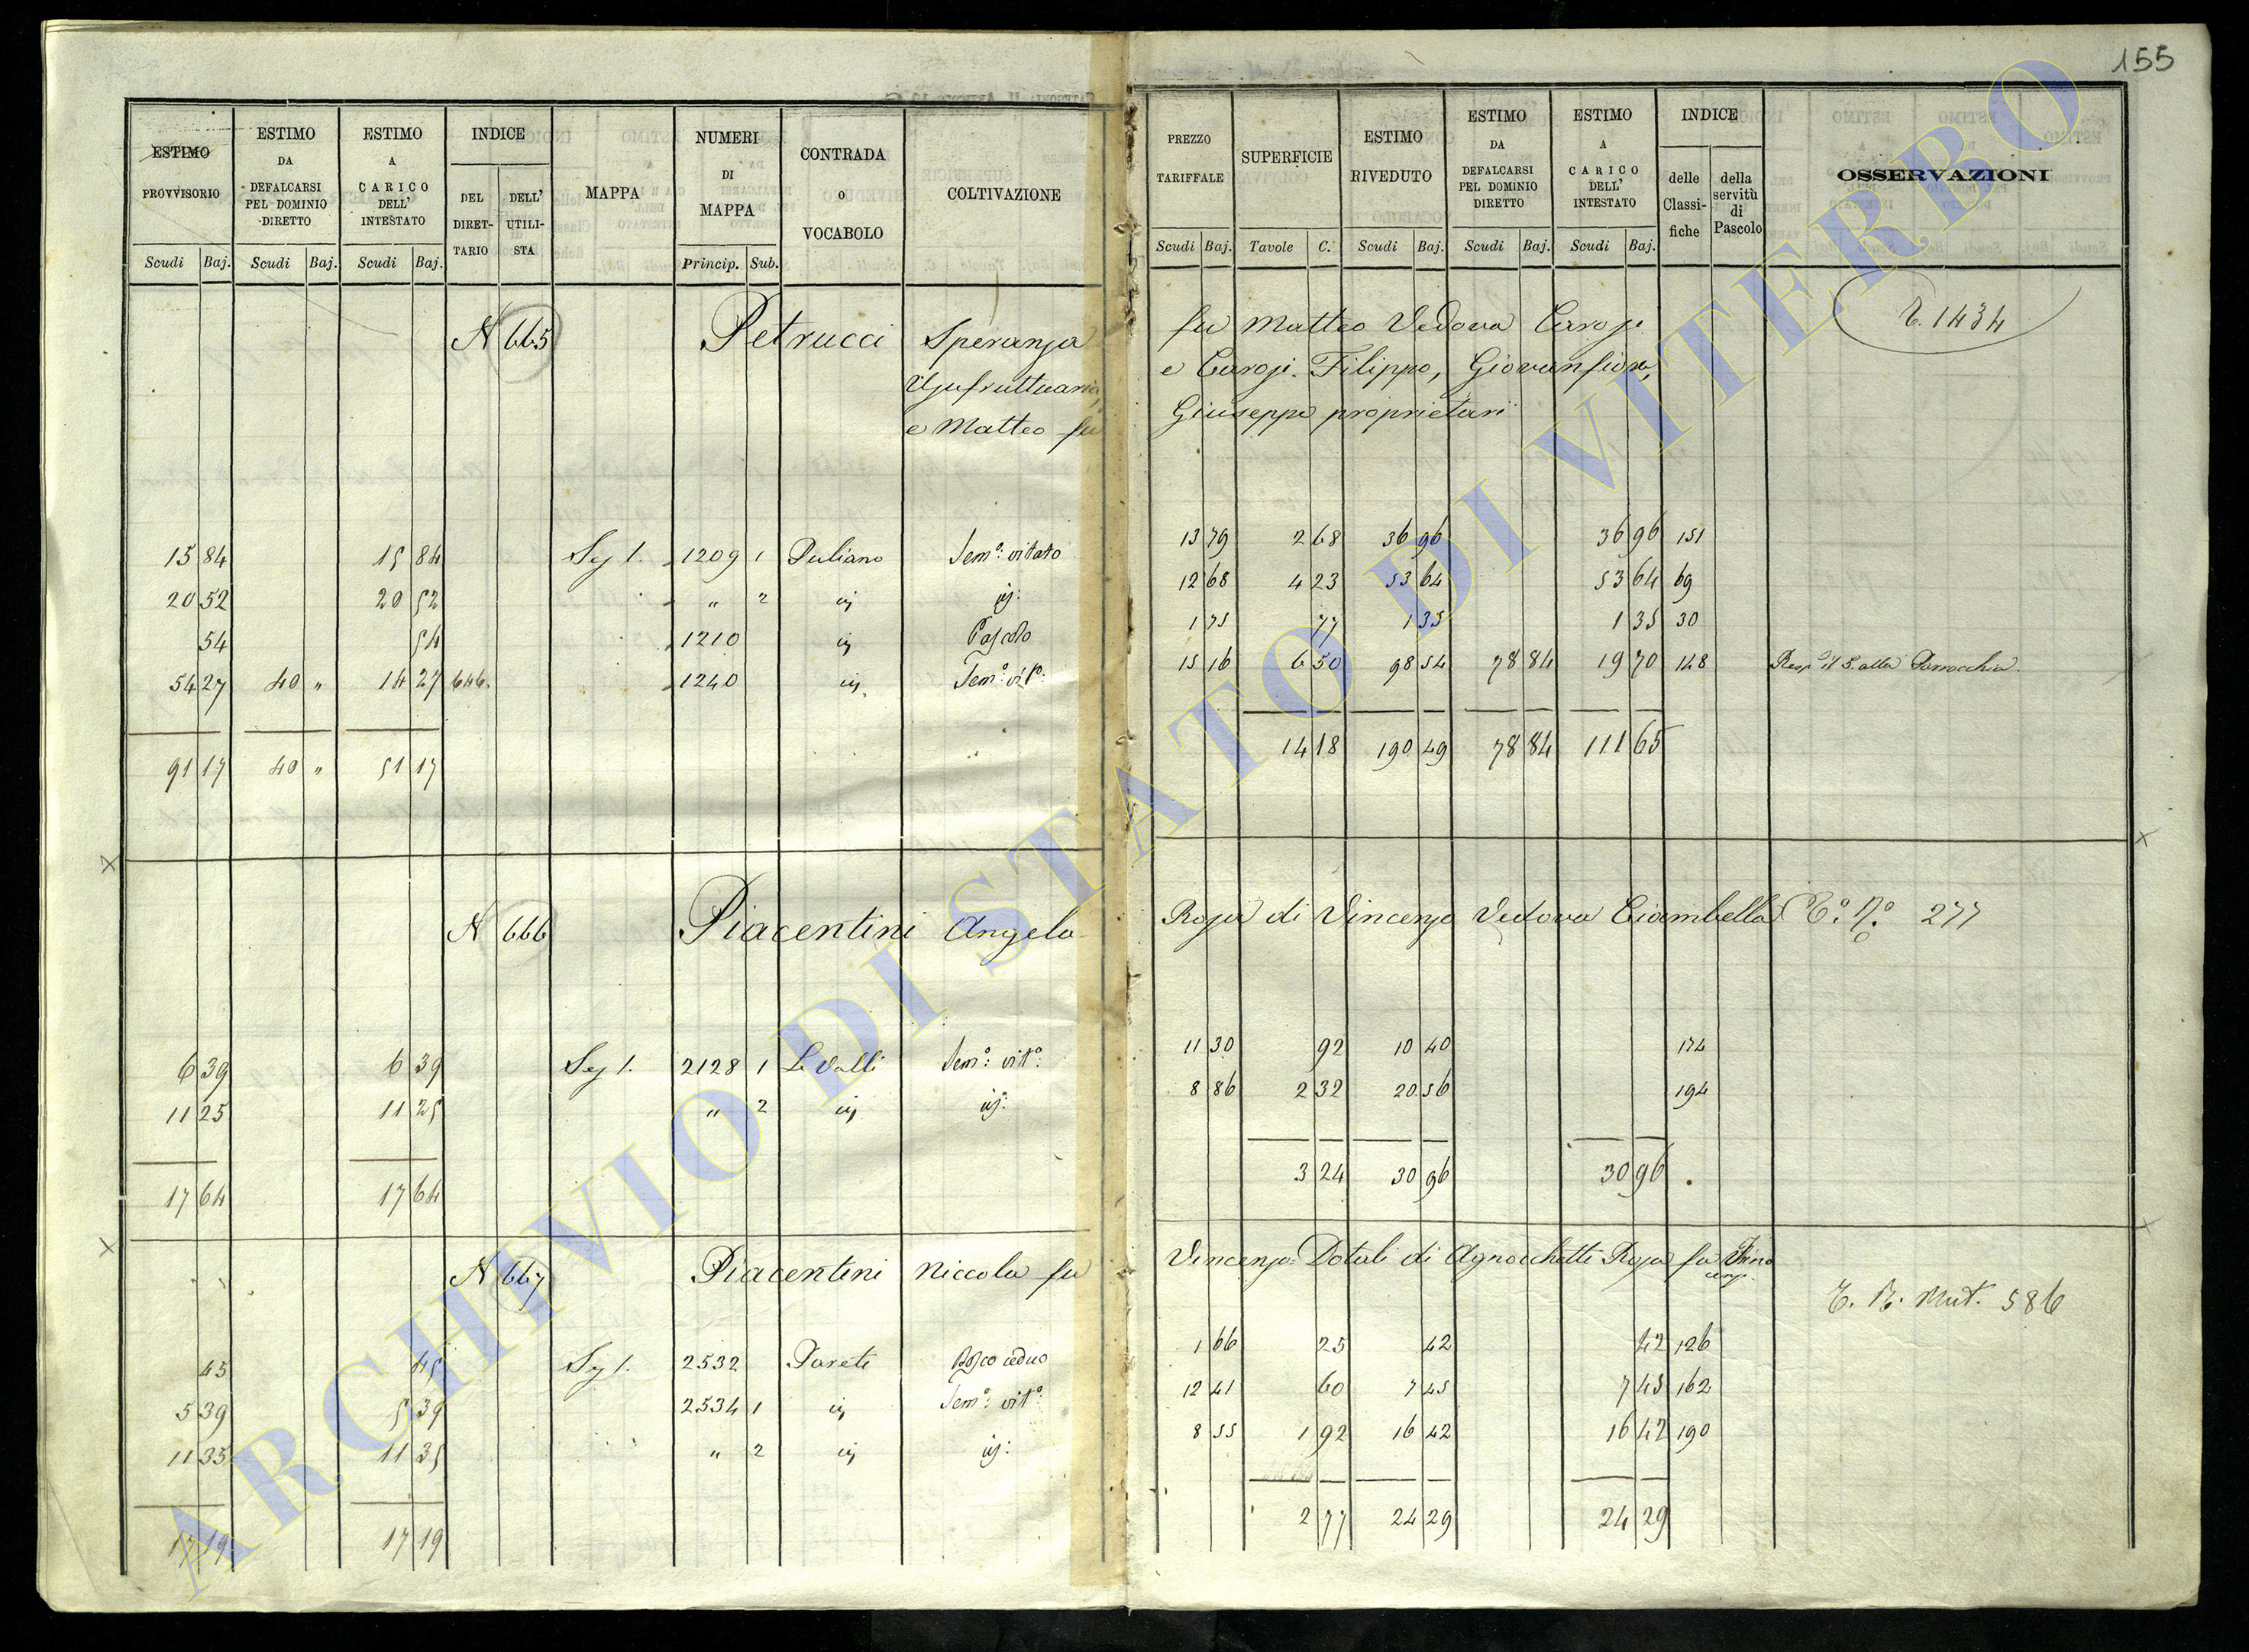 155
ESTIMO PROVVISORIO
ESTIMO DA DEFALCARSI PEL DOMINIO DIRETTO
ESTIMO A CARICO DELL' INTESTATO
INDICE
DEL DIRET-TARIO
DELL' UTILI-STA
MAPPA
NUMERI DI MAPPA
CONTRADA O VOCABOLO
COLTIVAZIONE
Scudi Baj. Scudi Baj. Scudi Baj. Princip. Sub.
PREZZO TARIFFALE
SUPERFICIE
ESTIMO RIVEDUTO
ESTIMO DA DEFALCARSI PEL DOMINIO DIRETTO
ESTIMO A CARICO DELL' INTESTATO
INDICE
delle Classi-fiche
della servitù di Pascolo
OSSERVAZIONI
Scudi Baj. Tavole C. Scudi Baj. Scudi Baj. Scudi Baj.
N 665 Petrucci Speranza
Usufruttuaria,
e Matteo fu
fu Matteo Vedova
e Filippo,
Giuseppe proprietari
1434
15 84 15 84 1209 1 Puliano Sem.o vitato
20 52 20 52 " 2
54 54 1210 Pascolo
54 27 40 " 14 27 646. 1240 Sem.o vit.o
91 17 40 " 51 17
13 79 2 68 36 96 36 96 151
12 68 4 23 53 64 53 64 69
1 75 77 1 35 1 35 30
15 16 6 50 98 54 78 84 19 70 148 alla Parrocchia.
14 18 190 49 78 84 111 65
N 666 Piacentini Angela
Rosa di Vincenzo Vedova Ciambella 277
6 39 6 39 2128 1 Le Valli Sem.o vit.o
11 25 11 25 " 2
17 64 17 64
11 30 92 10 40 174
8 86 2 32 20 56 194
3 24 30 96 30 96
N 667 Piacentini Niccola fu
Vincenzo Dotali di Agnocchetti Rosa fu
Mut. 586
45 45 2532 Parete Bosco ceduo
5 39 5 39 2534 1 Sem.o vit.o
11 35 11 35 " 2
17 19 17 19
1 66 25 42 42 126
12 41 60 7 45 7 45 162
8 55 1 92 16 42 16 42 190
2 77 24 29 24 29
ARCHIVIO DI STATO DI VITERBO